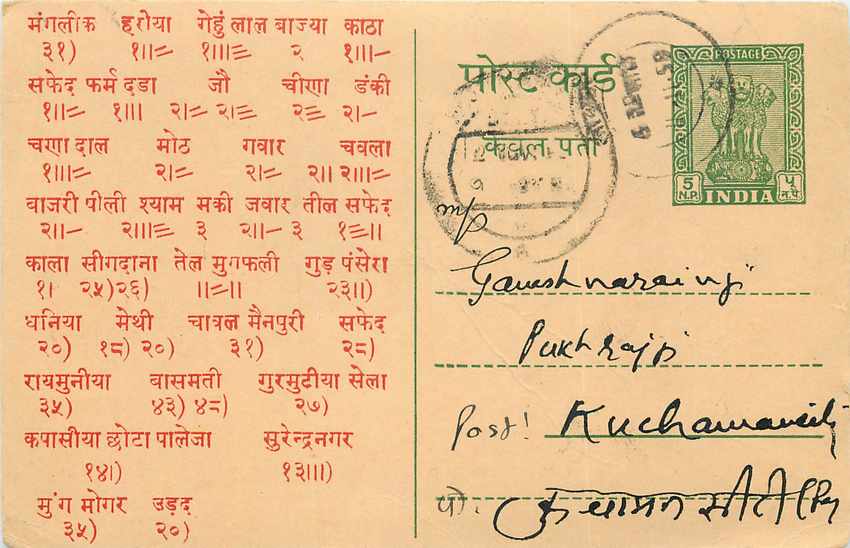 मंगलीक हरोया गेहुं लाल बाज्या काठा
३१) १।।= १।।।≡ २ १।।।-
सफेद फर्म दडा जौ चीणा डंकी
१॥= १॥। २।= २।≡ २≡ २।-
चणा दाल मोठ गवार चवला
१।॥= २।= २।= २॥ २॥।
बाजरी पीली श्याम मकी जवार तील सफेद
२॥- २॥।≡ ३ २॥- ३ १≡॥
काला सीगदाना तेल मुगफली गुड़ पंसेरा
१। २५) २६) ॥=॥ २३॥)
धनिया मेथी चात्रल मैनपुरी सफेद
२०) १८) २०) ३१) २८)
रायमुनीया बासमती गुरमुटीया सेला
३५) ४३) ४८) २७)
कपासीया छोटा पालेजा सुरेन्द्रनगर
१४।) १३॥।)
मुंग मोगर उड़द
३५) २०)
पोस्ट कार्ड
केवल पता
POSTAGE
5 N.P. INDIA ५ न.पै.
Ganeshnarainji
Pukhrajji
Post!
पो. कुचामन सीटी